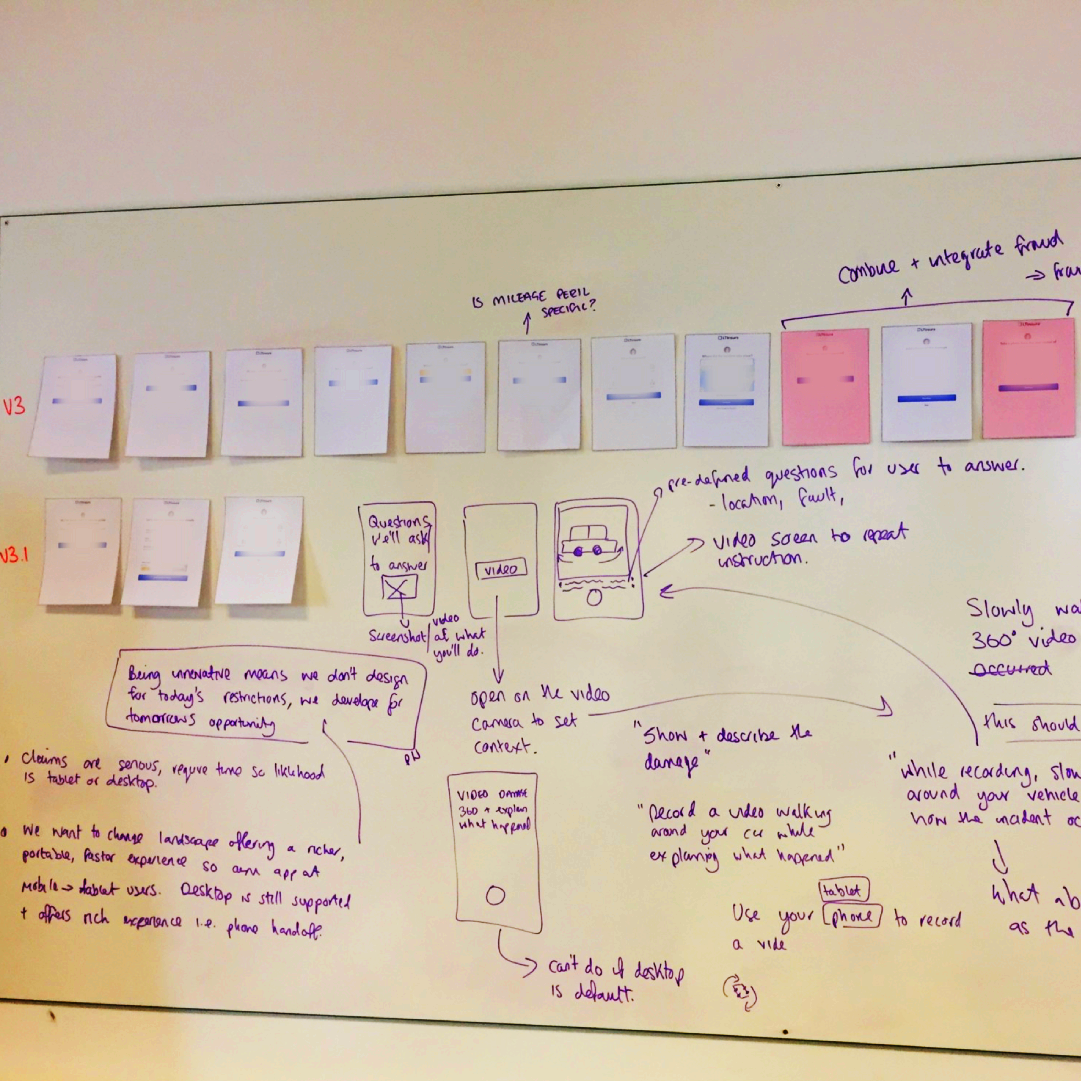 Combine + integrate fraud
IS MILEAGE PERIL
SPECIFIC?
V3
V3.1
pre-defined questions for user to answer.
- location, fault,
video screen to repeat
instruction.
Questions
we'll ask
to answer
Screenshot/
video
of what
you'll do.
VIDEO
open on the video
camera to set
context.
Being innovative means we don't design
for today's restrictions, we develop for
tomorrows opportunity
Claims are serious, require time so liklihood
is tablet or desktop.
We want to change landscape offering a richer,
portable, faster experience so aim app at
Mobile → tablet users. Desktop is still supported
+ offers rich experience i.e. phone handoff.
VIDEO DAMAGE
360 + explain
what happened
can't do if desktop
is default.
"Show + describe the
damage"
"Record a video walking
around your car while
explaining what happened"
tablet
Use your phone to record
a vide
Slowly
360° video
occurred
this should
"While recording,
around your vehicle
how the incident
What
as the